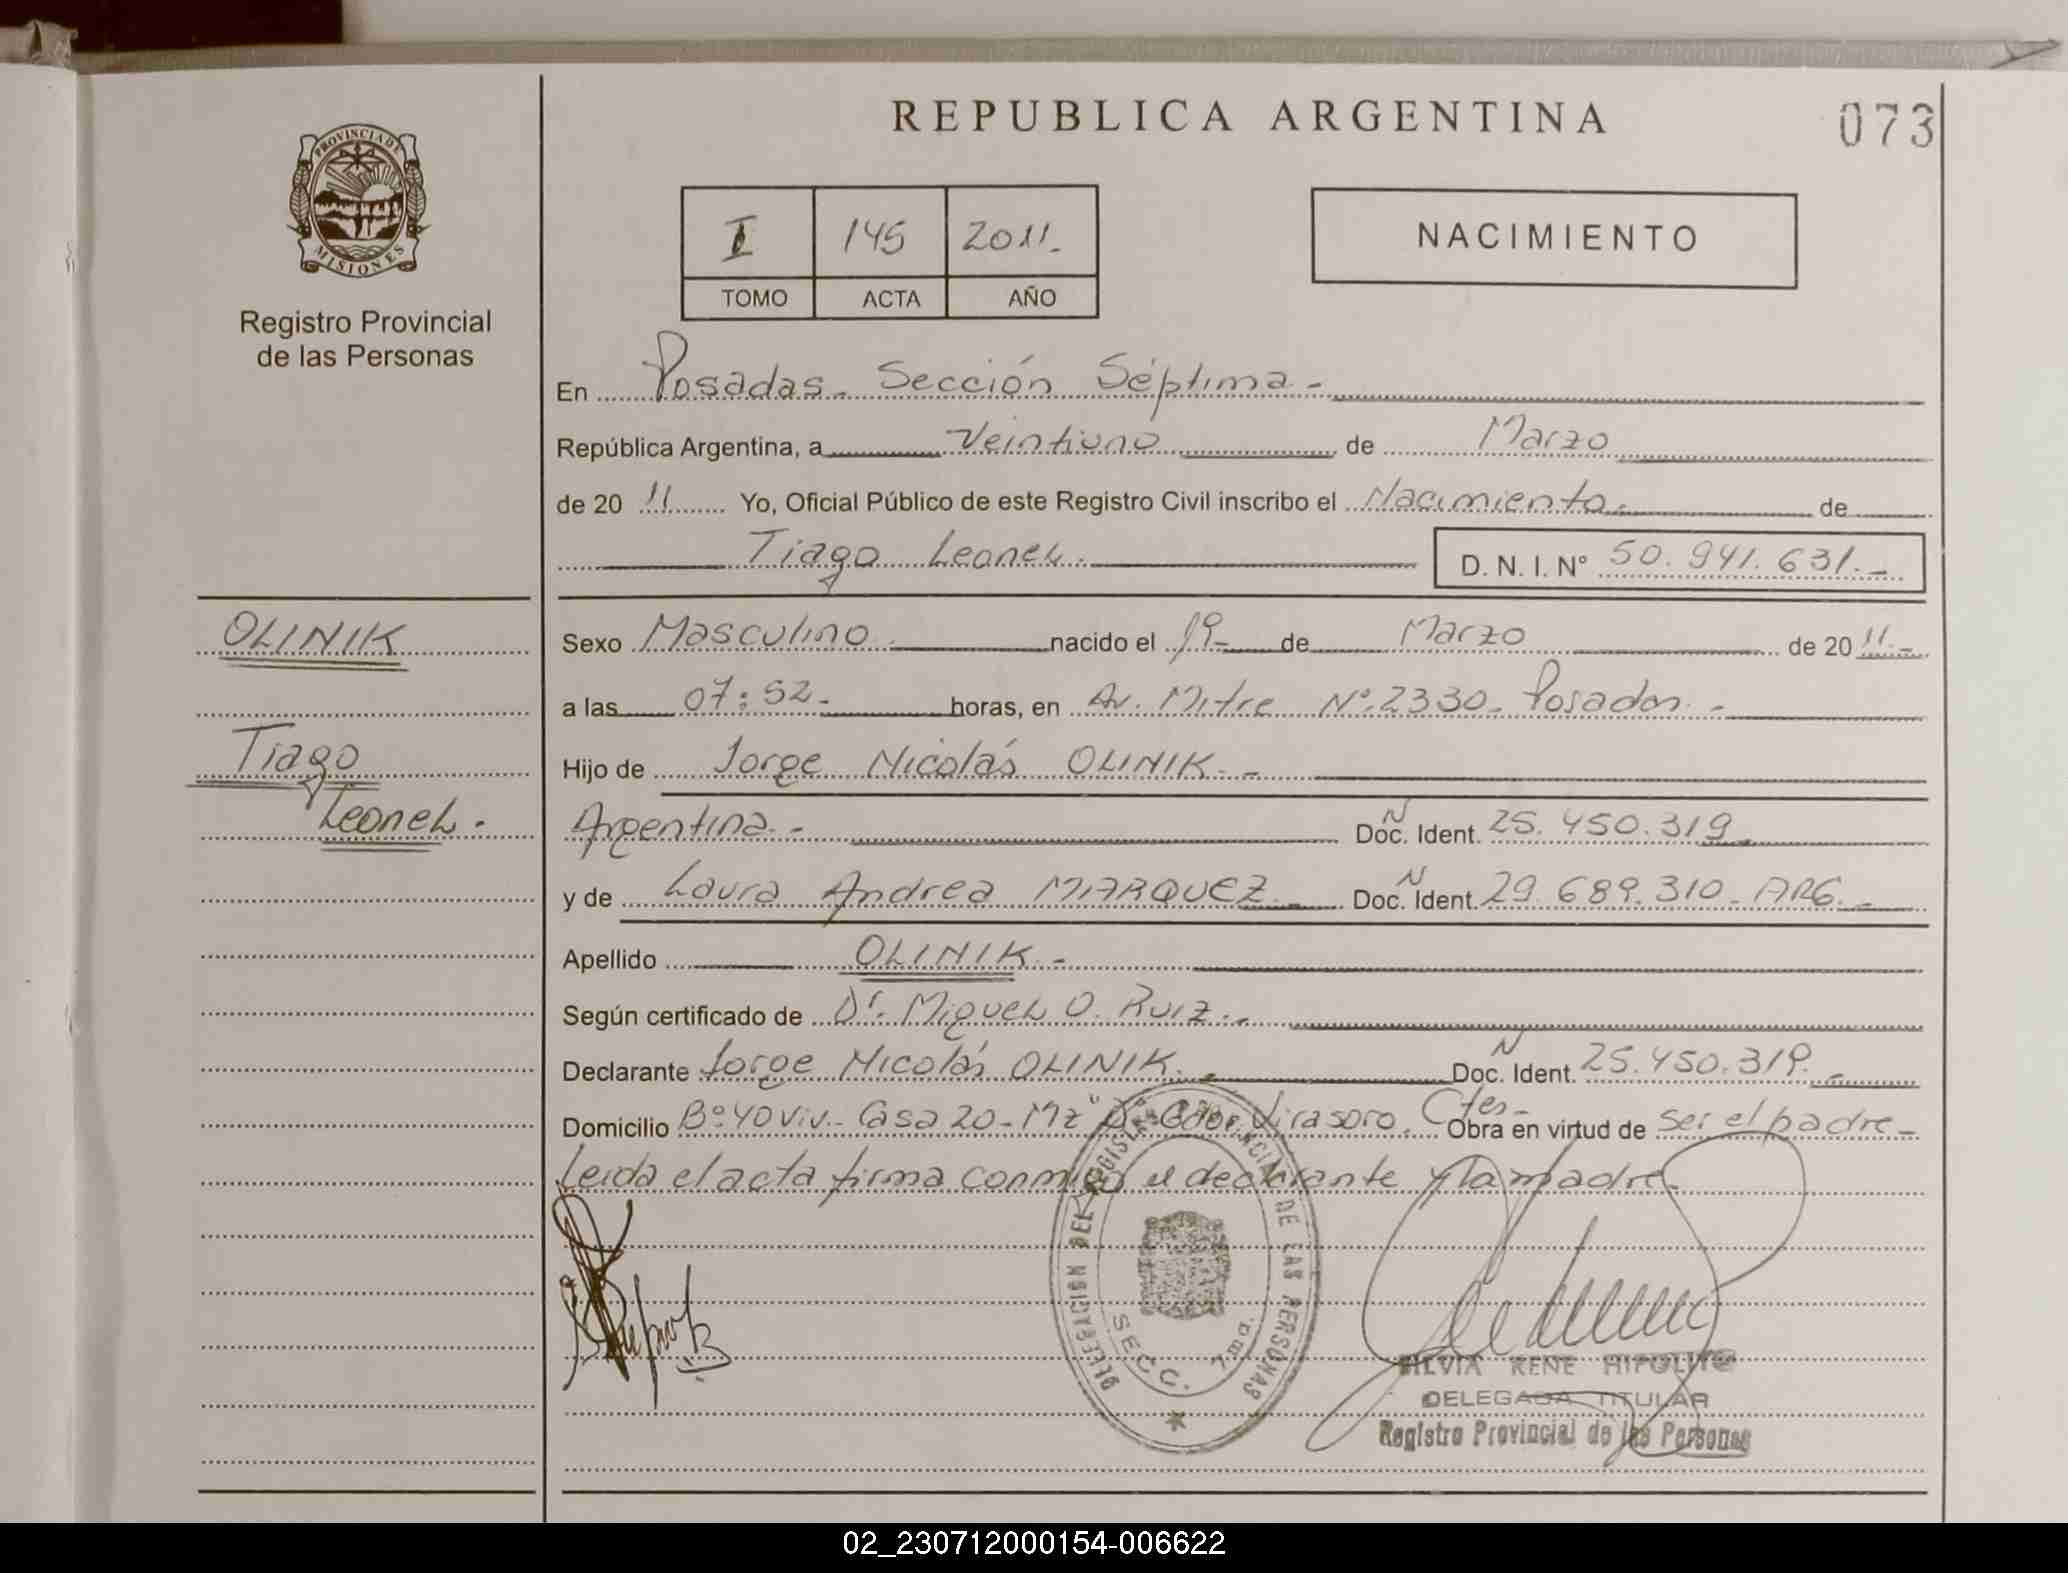 REPUBLICA ARGENTINA
073
PROVINCIA DE
MISIONES
Registro Provincial
de las Personas
I 145 2011.-
TOMO ACTA AÑO
NACIMIENTO
En Posadas.- Sección Séptima.-
República Argentina, a Veintiuno de Marzo
de 20 11 Yo, Oficial Público de este Registro Civil inscribo el Nacimiento.- de
Tiago Leonel.
D. N. I. N° 50.941.631.-
OLINIK
Tiago
Leonel.
Sexo Masculino. nacido el 19- de Marzo de 20 11.-
a las 07:52.- horas, en Av. Mitre N°.2330. Posadas.-
Hijo de Jorge Nicolás OLINIK.-
Argentina.- Doc. N Ident. 25.450.319
y de Laura Andrea MARQUEZ.- Doc. N Ident. 29.689.310. ARG.-
Apellido OLINIK.-
Según certificado de Dr. Miguel O. Ruiz.-
Declarante Jorge Nicolás OLINIK. Doc. N Ident. 25.450.319.-
Domicilio B°40 Viv.- Casa 20- Mz "D" Gdor. Virasoro. Ctes- Obra en virtud de ser el padre-
Leida el acta firma conmigo el declarante y la madre.-
DELEGACION DEL REGISTRO PROVINCIAL DE LAS PERSONAS
SECC. 7ma.
SILVIA RENE HIPOLITO
DELEGADA TITULAR
Registro Provincial de las Personas
02_230712000154-006622